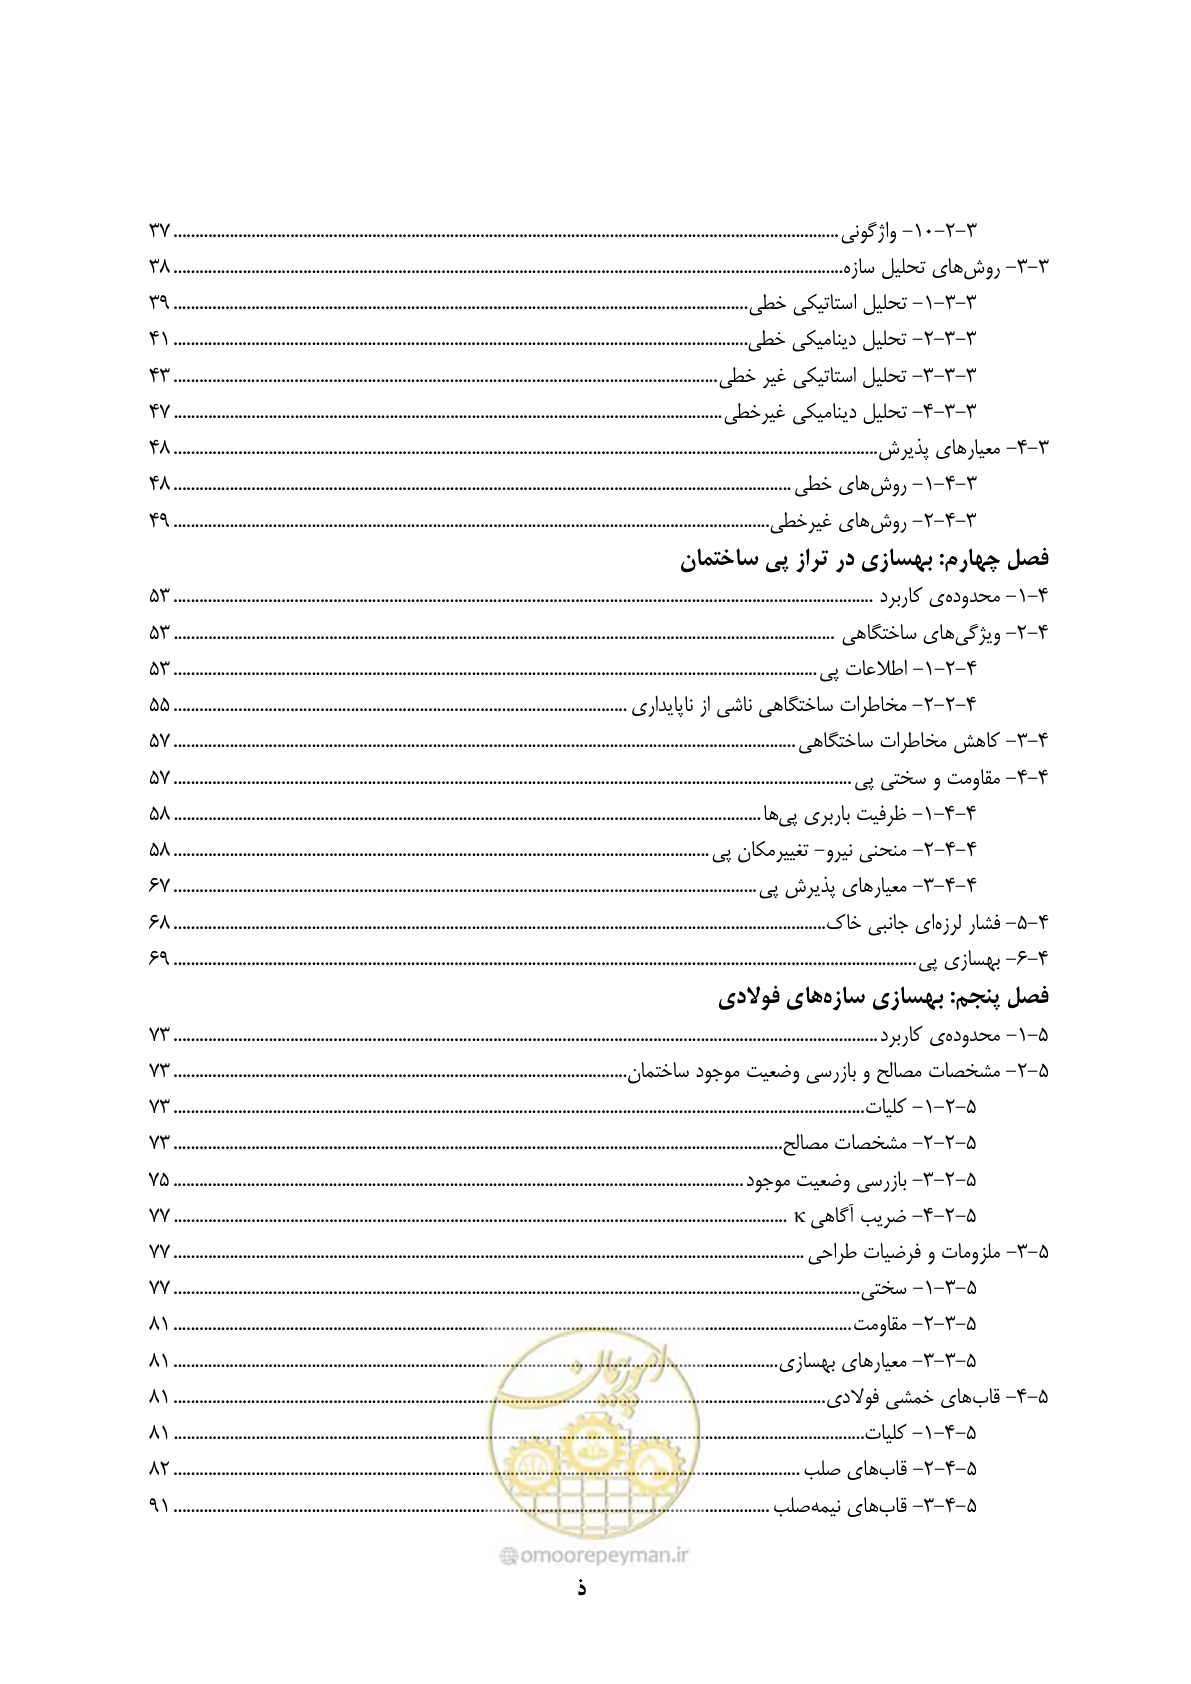 ۳-۲-۱۰- واژگونی ........ ۳۷
۳-۳- روش‌های تحلیل سازه ........ ۳۸
۳-۳-۱- تحلیل استاتیکی خطی ........ ۳۹
۳-۳-۲- تحلیل دینامیکی خطی ........ ۴۱
۳-۳-۳- تحلیل استاتیکی غیر خطی ........ ۴۳
۳-۳-۴- تحلیل دینامیکی غیرخطی ........ ۴۷
۳-۴- معیارهای پذیرش ........ ۴۸
۳-۴-۱- روش‌های خطی ........ ۴۸
۳-۴-۲- روش‌های غیرخطی ........ ۴۹
فصل چهارم: بهسازی در تراز پی ساختمان
۴-۱- محدوده‌ی کاربرد ........ ۵۳
۴-۲- ویژگی‌های ساختگاهی ........ ۵۳
۴-۲-۱- اطلاعات پی ........ ۵۳
۴-۲-۲- مخاطرات ساختگاهی ناشی از ناپایداری ........ ۵۵
۴-۳- کاهش مخاطرات ساختگاهی ........ ۵۷
۴-۴- مقاومت و سختی پی ........ ۵۷
۴-۴-۱- ظرفیت باربری پی‌ها ........ ۵۸
۴-۴-۲- منحنی نیرو- تغییرمکان پی ........ ۵۸
۴-۴-۳- معیارهای پذیرش پی ........ ۶۷
۴-۵- فشار لرزه‌ای جانبی خاک ........ ۶۸
۴-۶- بهسازی پی ........ ۶۹
فصل پنجم: بهسازی سازه‌های فولادی
۵-۱- محدوده‌ی کاربرد ........ ۷۳
۵-۲- مشخصات مصالح و بازرسی وضعیت موجود ساختمان ........ ۷۳
۵-۲-۱- کلیات ........ ۷۳
۵-۲-۲- مشخصات مصالح ........ ۷۳
۵-۲-۳- بازرسی وضعیت موجود ........ ۷۵
۵-۲-۴- ضریب آگاهی κ ........ ۷۷
۵-۳- ملزومات و فرضیات طراحی ........ ۷۷
۵-۳-۱- سختی ........ ۷۷
۵-۳-۲- مقاومت ........ ۸۱
۵-۳-۳- معیارهای بهسازی ........ ۸۱
۵-۴- قاب‌های خمشی فولادی ........ ۸۱
۵-۴-۱- کلیات ........ ۸۱
۵-۴-۲- قاب‌های صلب ........ ۸۲
۵-۴-۳- قاب‌های نیمه‌صلب ........ ۹۱
امور پیمان
@omoorepeyman.ir
ذ